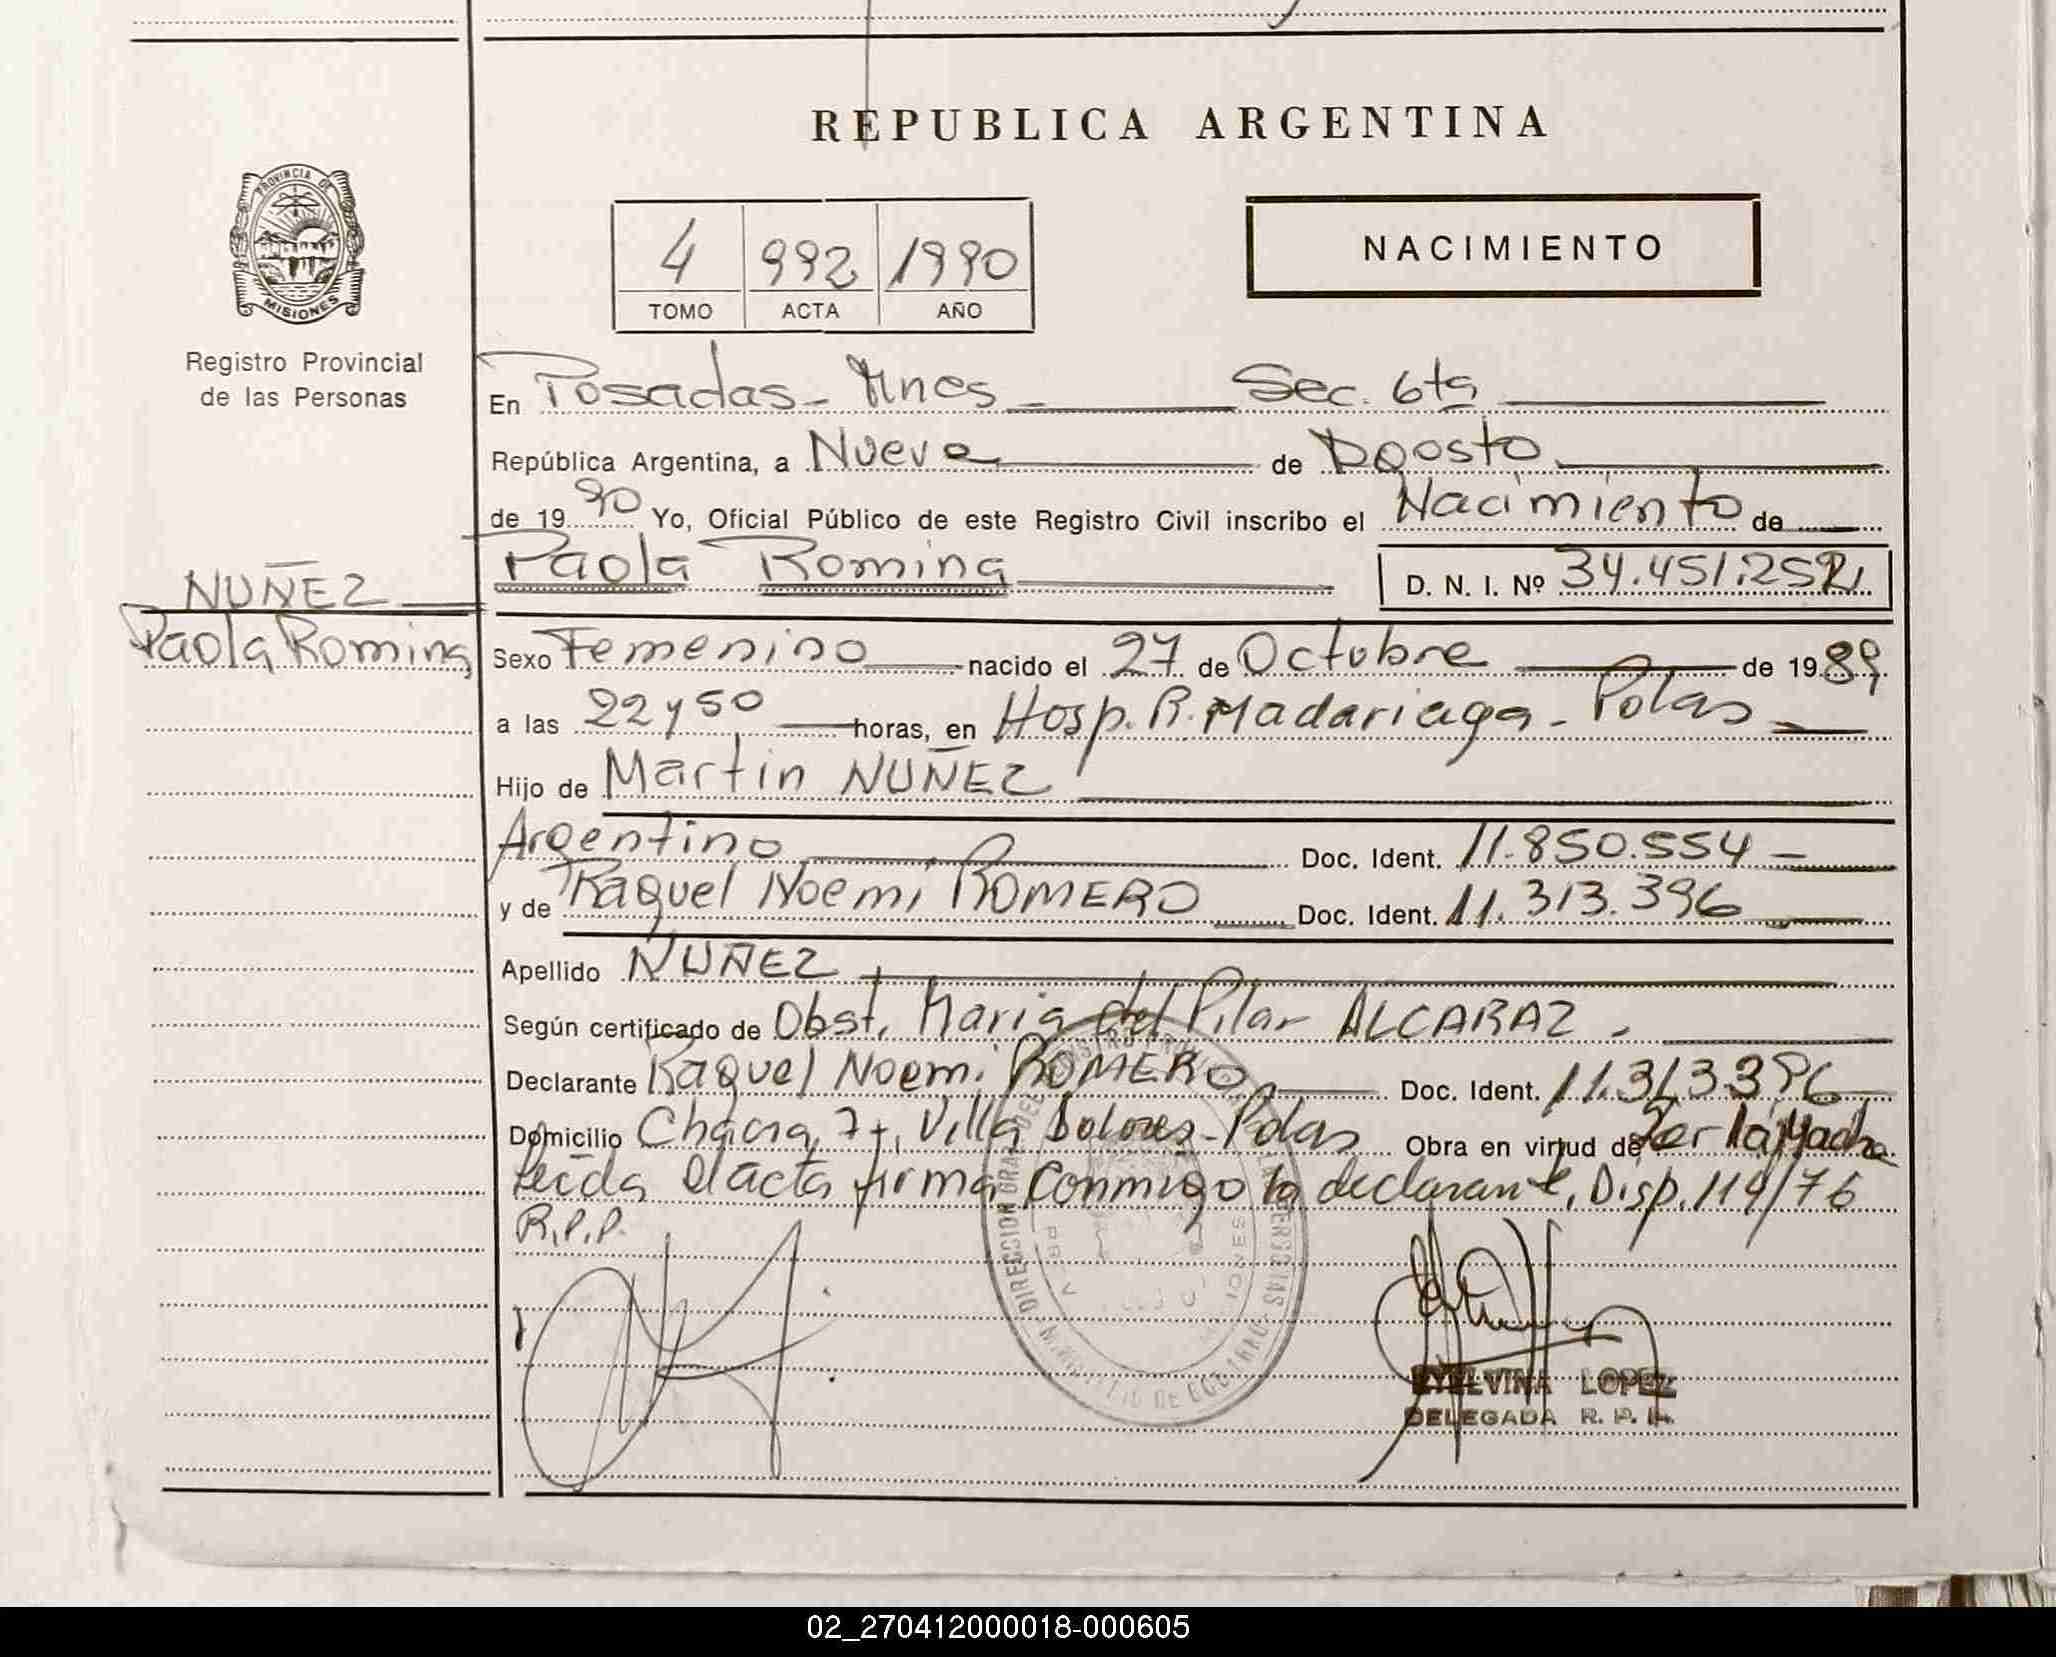 REPUBLICA ARGENTINA
PROVINCIA DE
MISIONES
4 992 1990
TOMO ACTA AÑO
NACIMIENTO
Registro Provincial
de las Personas
En Posadas - Mnes - Sec. 6ta
República Argentina, a Nueve de Agosto
de 1990 Yo, Oficial Público de este Registro Civil inscribo el Nacimiento de
Paola Romina D. N. I. Nº 34.451.252
NUÑEZ
Paola Romina
Sexo Femenino nacido el 27 de Octubre de 1989
a las 22 y 50 horas, en Hosp. R. Madariaga - Pdas
Hijo de Martin NUÑEZ
Argentino Doc. Ident. 11.850.554 -
y de Raquel Noemi ROMERO Doc. Ident. 11.313.396
Apellido NUÑEZ
Según certificado de Obst. Maria del Pilar ALCARAZ .
Declarante Raquel Noemi ROMERO Doc. Ident. 11.313.396
Domicilio Chacra 7+, Villa Dolores - Pdas Obra en virtud de Ser la Madre
Leida el acta firma conmigo la declarante, Disp. 114/76
R.P.P.
LOPEZ
DELEGADA R. P. P.
02_270412000018-000605